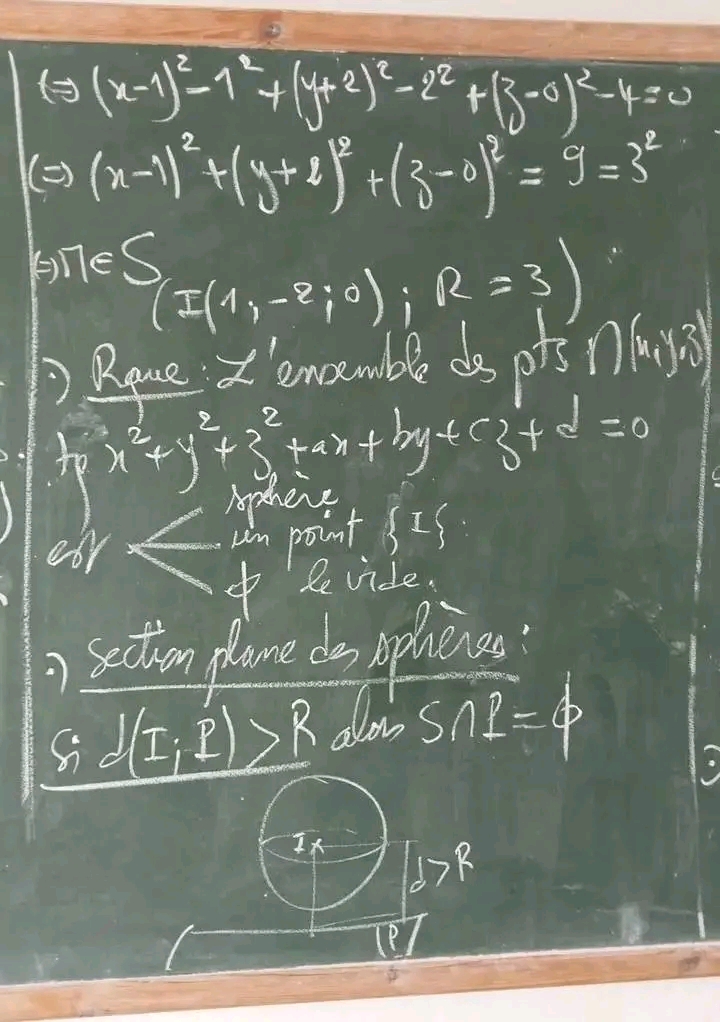 ⇔ (x-1)² - 1² + (y+2)² - 2² + (z-0)² - 4 = 0
⇔ (x-1)² + (y+2)² + (z-0)² = 9 = 3²
⇔ M ∈ S(I(1;-2;0); R = 3)
•) Rque : L'ensemble des pts M(x,y,z)
tq x² + y² + z² + ax + by + cz + d = 0
sphère
est un point {I}.
ϕ le vide.
•) section plane des sphères :
Si d(I; P) > R alors S∩P = ϕ
I x
d > R
(P)